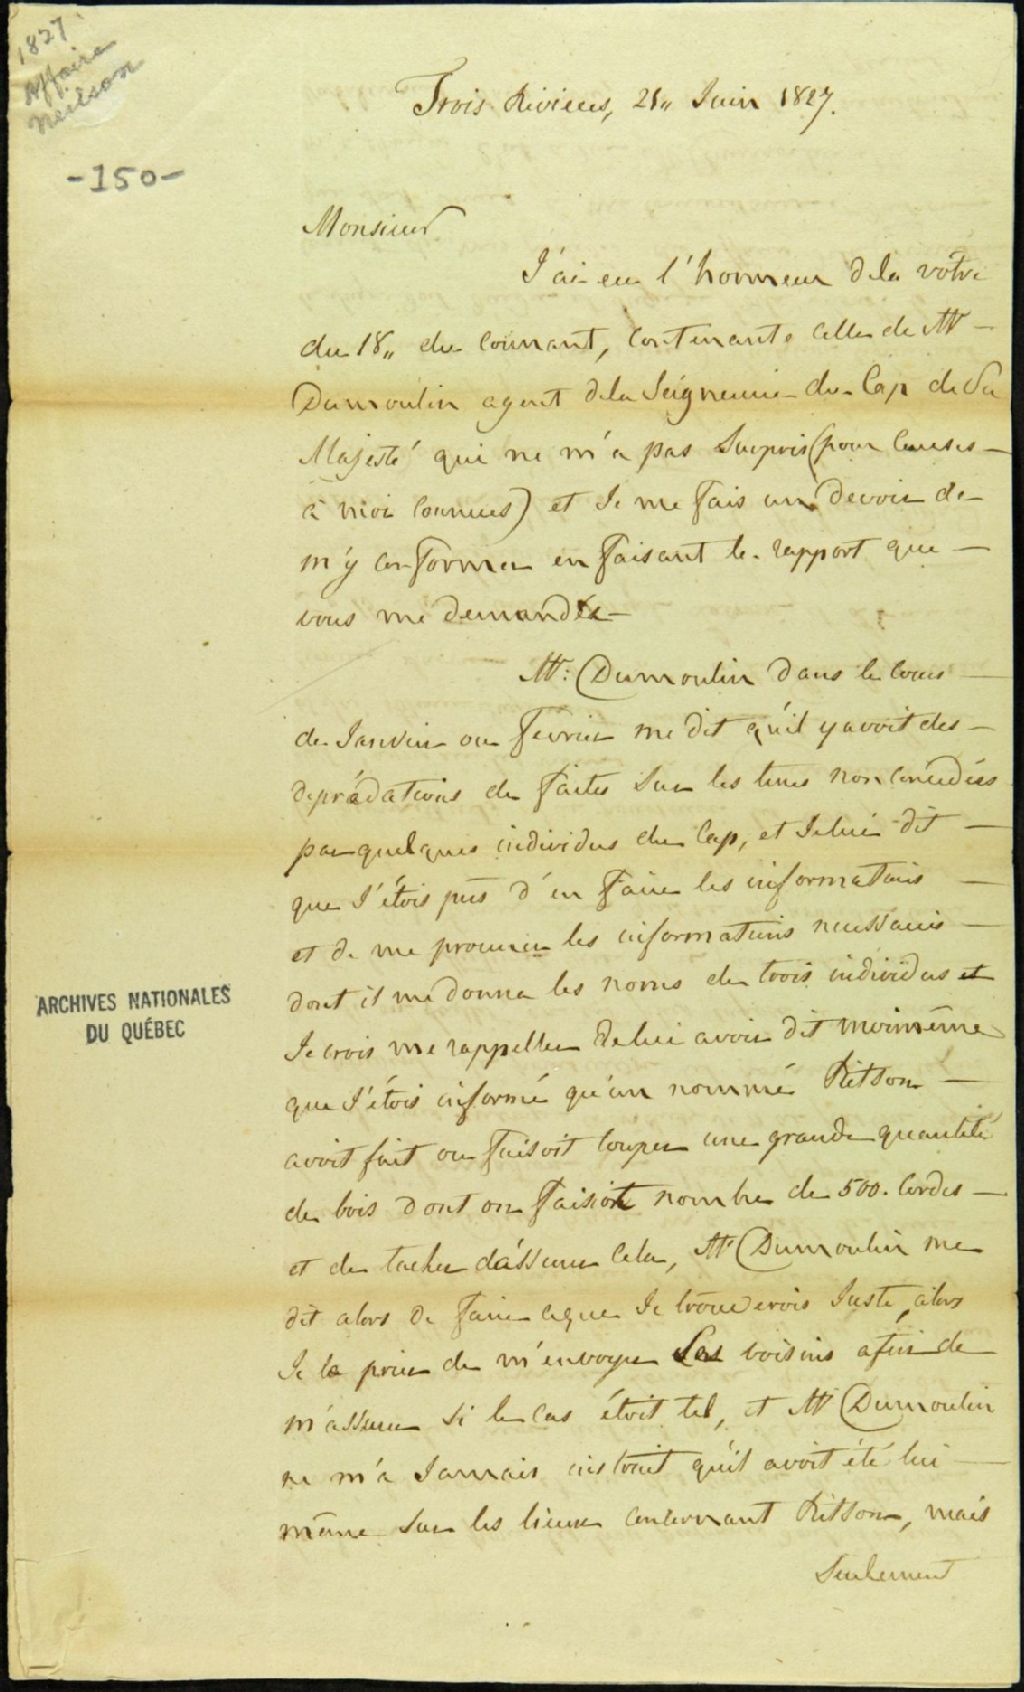 1827
Affaire
Neilson
-150-
Trois Rivieres, 21,, Juin 1827.
Monsieur
J'ai eu l'honneur de la votre
du 18,, du Courant, Contenante Celle de Mr
Dumoulin agent de la Seigneurie du Cap de Sa
Majesté qui ne m'a pas Surpris (pour Causes
à moi Connues) et Je me fais un devoir de
m'y Conformer en faisant le rapport que
vous me demandez
Mr: Dumoulin dans le Cours
de Janvier ou fevrier me dit qu'il y avoit des
deprédations de faites Sur les terres non Concédées
par quelques individus du Cap, et Je lui dit
que J'étois pret d'en faire les informations
et de me procurer les informations necessaires
dont il me donna les noms de trois individus et
Je crois me rappeller de lui avoir dit moimême
que J'étois informé qu'un nommé Ritson
avoit fait ou faisoit Couper une grande quantité
de bois dont on faisoit nombre de 500. Cordes
et de tacher d'assurer Cela, Mr Dumoulin me
dit alors de faire Ceque Je trouverois Juste, alors
Je le priai de m'envoyer Les voisins afin de
m'assurer Si le Cas étoit tel, et Mr Dumoulin
ne m'a Jamais instruit qu'il avoit été lui
même Sur les lieux Concernant Ritson, mais
Seulement
ARCHIVES NATIONALES
DU QUÉBEC